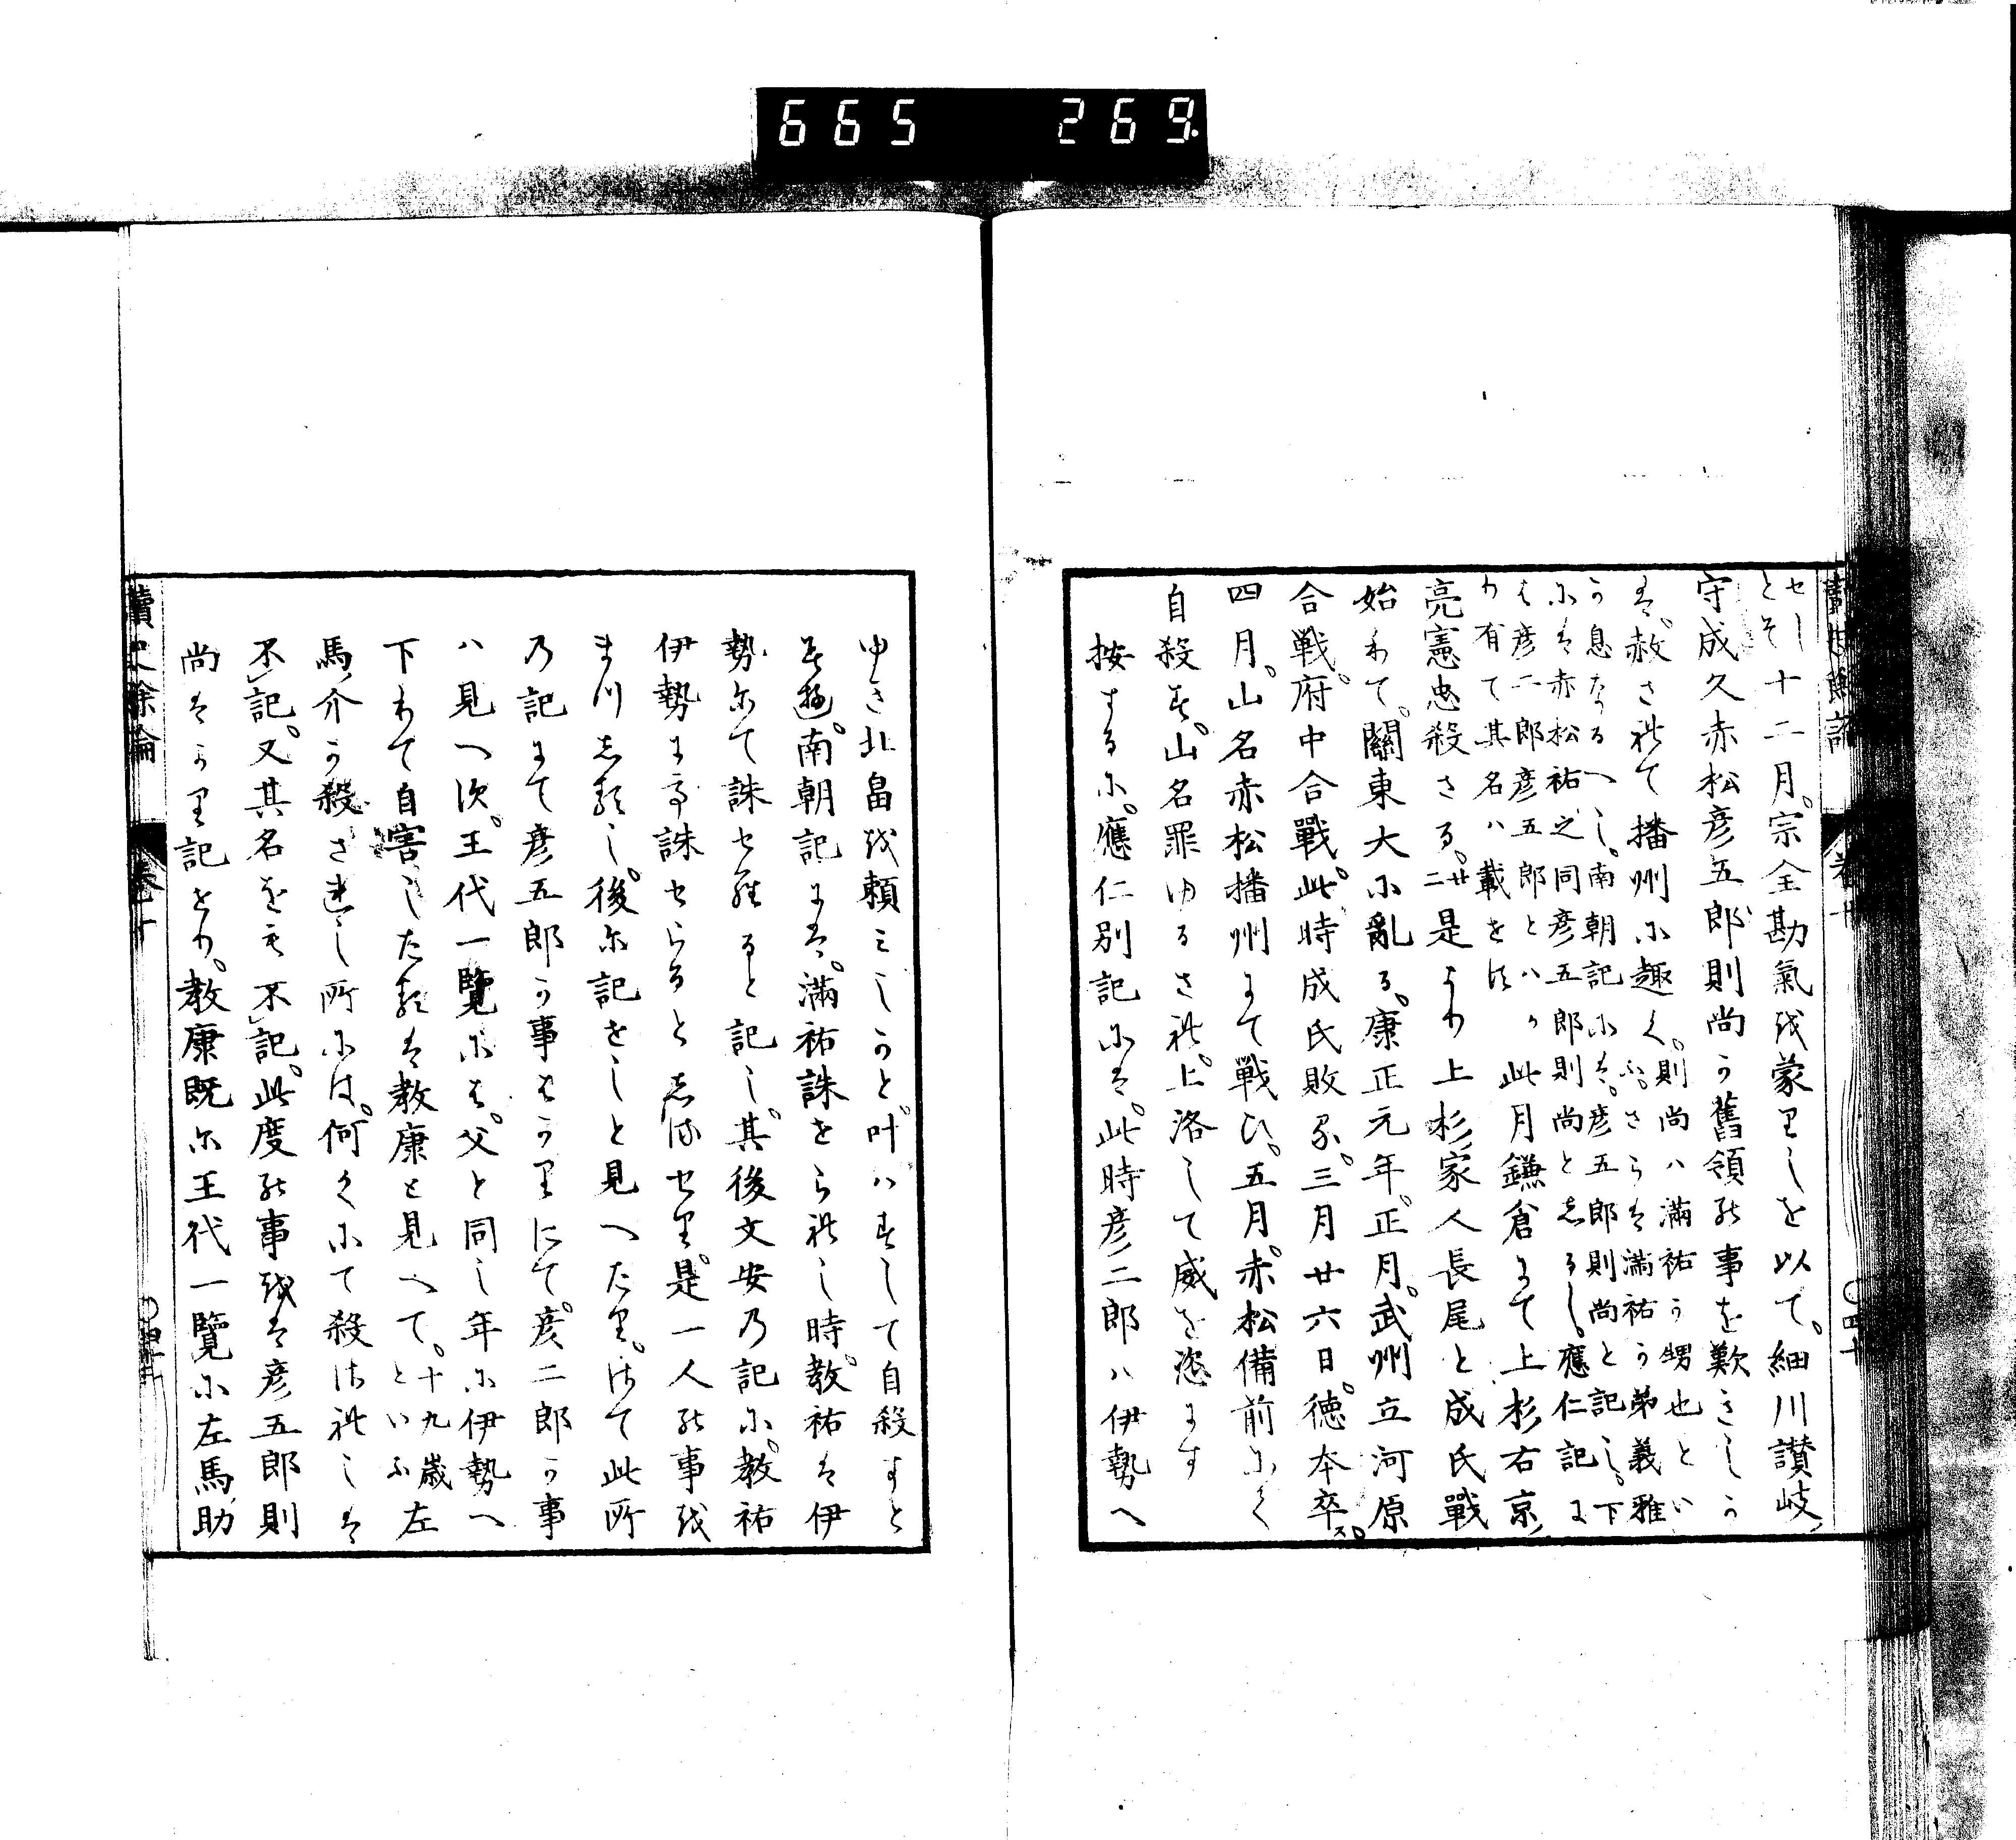 665 269
讀史餘論 卷十 〇四十
せし
とそ
十二月。宗全勘氣を蒙りしを以て。細川讃岐
守成久赤松彦五郎則尚か舊領の事を歎きしか
は。赦されて播州に趣く。
則尚ハ満祐か甥也とい
ふ。さらは満祐か弟義雅
か息なるへし。南朝記には。彦五郎則尚と記し。下
には赤松祐之同彦五郎則尚としるし。應仁記に
は彦二郎彦五郎とハか
り有て其名ハ載せす
此月鎌倉にて上杉右京
亮憲忠殺さる。
廿
二
是より上杉家人長尾と成氏戰
始りて。關東大に亂る。康正元年。正月。武州立河原
合戰。府中合戰。此時成氏敗る。三月廿六日。徳本卒ス。
四月。山名赤松播州にて戰ひ。五月。赤松備前にて
自殺す。山名罪ゆるされ。上洛して威を恣にす
按するに。應仁別記には。此時彦二郎ハ伊勢へ
ゆき北畠を頼みしかと叶ハすして自殺すと
南朝記には。満祐誅せられし時。教祐は伊
勢にて誅せらるると記し。其後文安の記に。教祐
伊勢にて誅せらるとしるせり。是一人の事を
まつしるし。後に記せしと見へたり。さて此所
の記にて彦五郎か事はかりにて。彦二郎か事
ハ見へす。王代一覽には。父と同し年に伊勢へ
下りて自害したるは教康と見へて。
十九歳
といふ
左
馬介か殺されし所には。何くにて殺されしは
不記。又其名をも不記。此度の事をは彦五郎則
尚はかり記せり。教康既に王代一覽に左馬助
讀史餘論 卷十